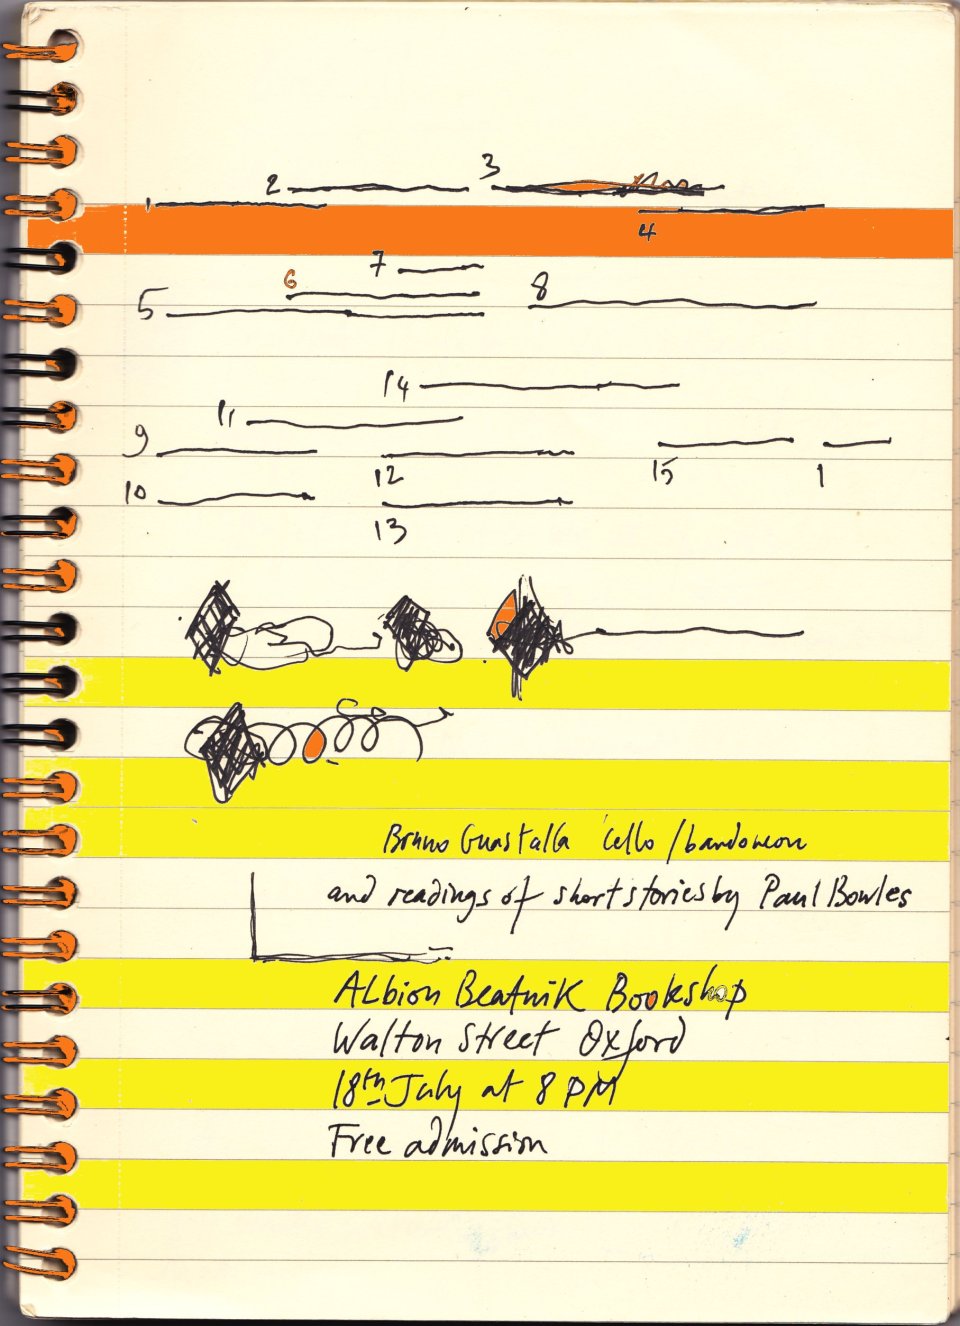 1 2 3
4
5 6 7 8
14
9 11
12 15 1
10
13
Bruno Guastalla 'cello / bandoneon
and readings of short stories by Paul Bowles
Albion Beatnik Bookshop
Walton Street Oxford
18th July at 8 PM
Free admission